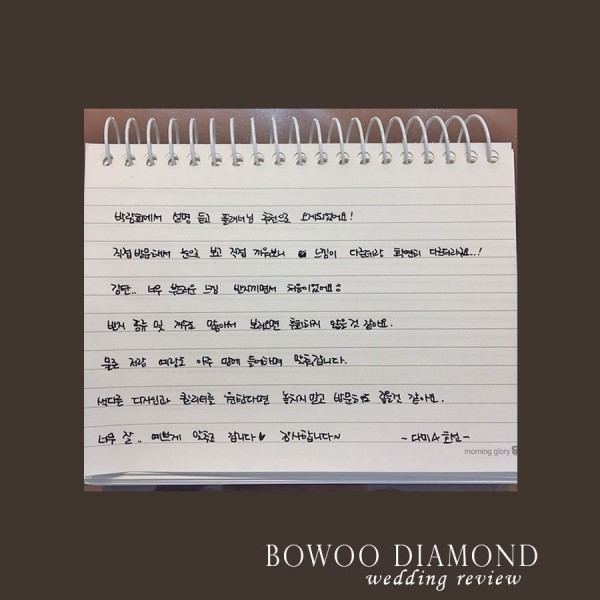 박람회에서 설명 듣고 플래너님 추천으로 오게되었어요!
직접 방문해서 눈으로 보고 직접 껴보니 느낌이 다른데랑 확연히 다르더라구요..!
감탄.. 너무 부드러운 느낌 반지끼면서 처음이었어요
반지 종류 및 개수도 많아서 보러오면 후회하지 않을것 같아요.
물론 저랑 예랑도 아주 맘에 들어하며 맞추고갑니다.
색다른 디자인과 퀄리티를 원한다면 놓치지말고 방문해도 좋을것 같아요.
너무 잘.. 예쁘게 맞추고 갑니다♥ 감사합니다~
morning glory
BOWOO DIAMOND
wedding review